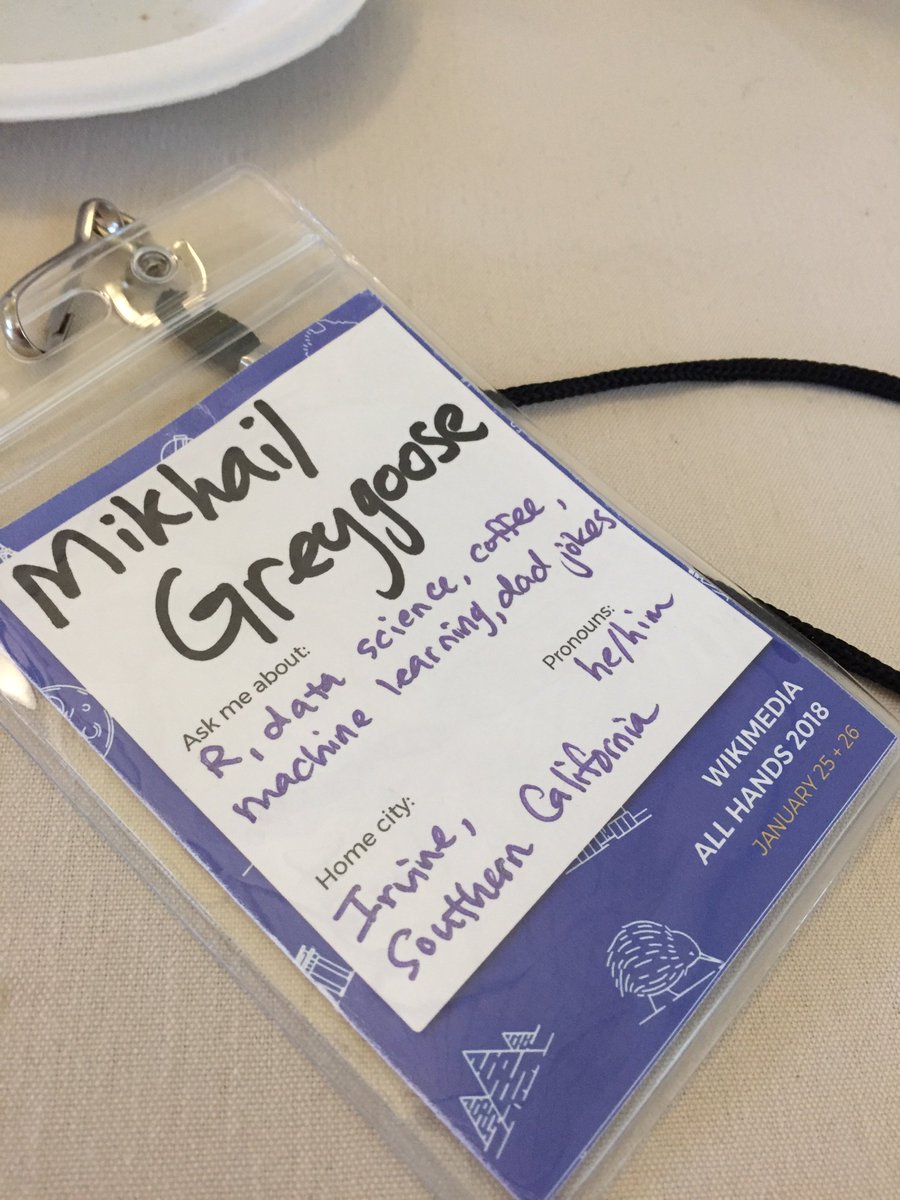 Mikhail
Greygoose
Ask me about:
R, data science, coffee,
machine learning, dad jokes
Pronouns:
he/him
Home city:
Irvine,
Southern California
WIKIMEDIA
ALL HANDS 2018
JANUARY 25 + 26